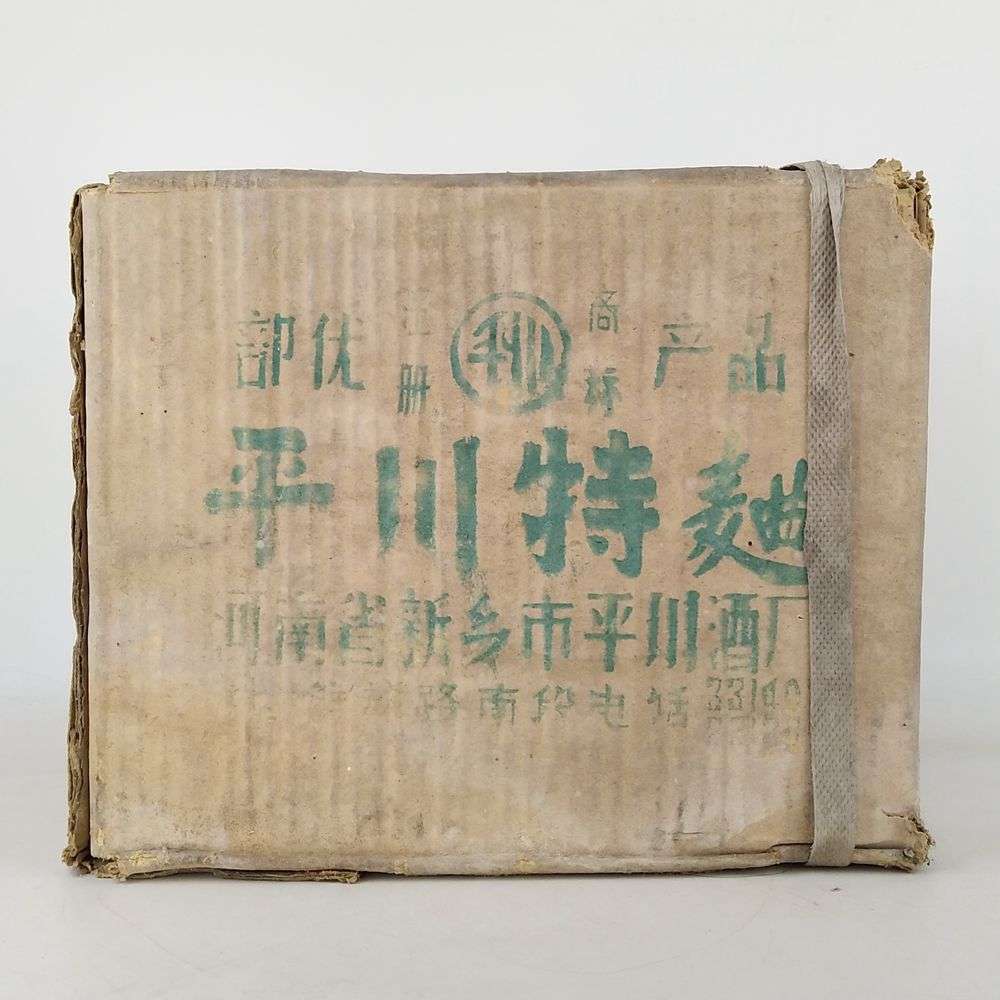 部优 注册 平川 商标 产品
平川特麯
河南省新乡市平川酒厂
路南段电话